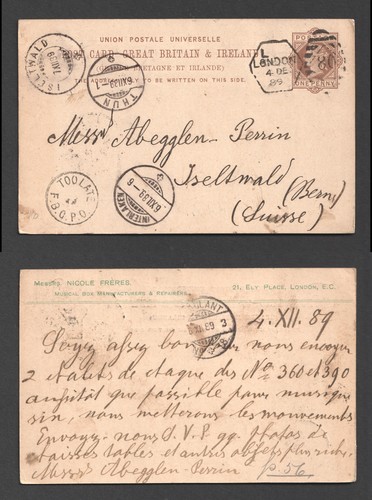 UNION POSTALE UNIVERSELLE
POST CARD GREAT BRITAIN & IRELAND
(GRANDE BRETAGNE ET IRLANDE)
THE ADDRESS ONLY TO BE WRITTEN ON THIS SIDE.
ISELTWALD
THUN
6.XII.89.-1
L
LONDON
4 DE
89
ONE PENNY
Messrs Abegglen-Perrin
Iseltwald
(Bern)
(Suisse)
TOO LATE
F.B.O.P.O.
INTERLAKEN
6.XII.89.-6
MESSRS. NICOLE FRÈRES.
MUSICAL BOX MANUFACTURERS & REPAIRERS.
21, ELY PLACE, LONDON, E.C.
AMBULANT
4.XII.89
Soyez assez bons pour nous envoyer
2 de chaque des Nos 360 et 390
aussitôt que possible sans musique
nous mettrons les mouvements
Envoyez-nous S.V.P. qq. Photos de
caisses tables et autres objets plus riches
Messrs Abegglen-Perrin p. 56